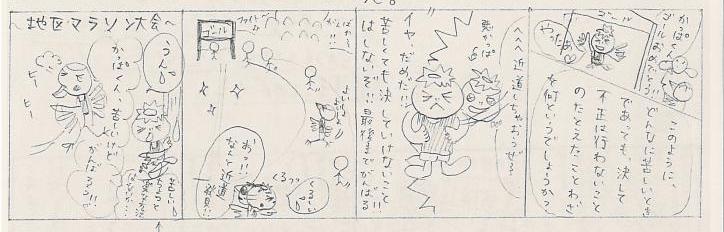 ～地区マラソン大会～
うん
かっぱくん
苦しいけど
がんばろう!!
ヒー
ヒー
苦しい
ちょっと
ゴール
ファイトー
がんばれ～
よいしょ
よいしょ
おっ!!
なんと近道
発見!!
くるっ
くるしい
へへへ近道しちゃおうぜ～
悪かっぱ
イヤ、だめだ!!
苦しくても決していけないこと
はしないぞ!!最後までがんばる!!
かっぱくん
ゴールおめでとう!!
ゴール
やったぁ
このように、
どんなに苦しいとき
であっても、決して
不正は行わないこと
のたとえたことわざ
を何というでしょうか?